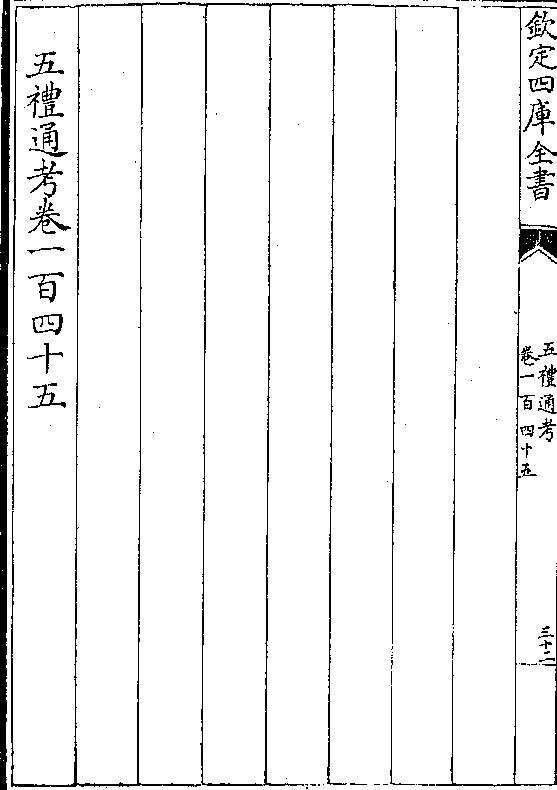 欽定四庫全書
五禮通考
卷一百四十五
三十二
五禮通考卷一百四十五